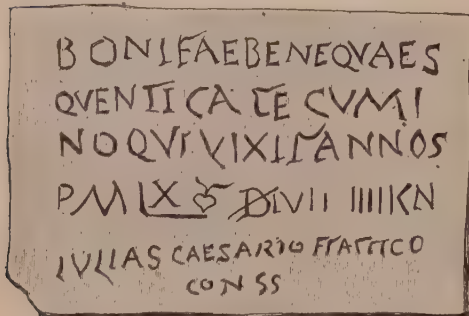 BONIFAEBENEQVAES
QVENTICATECVMI
NOQVIVIXITANNOS
PMLX ❦ DIVII IIIIKN
IVLIAS CAESARIO ETATTICO
CONSS